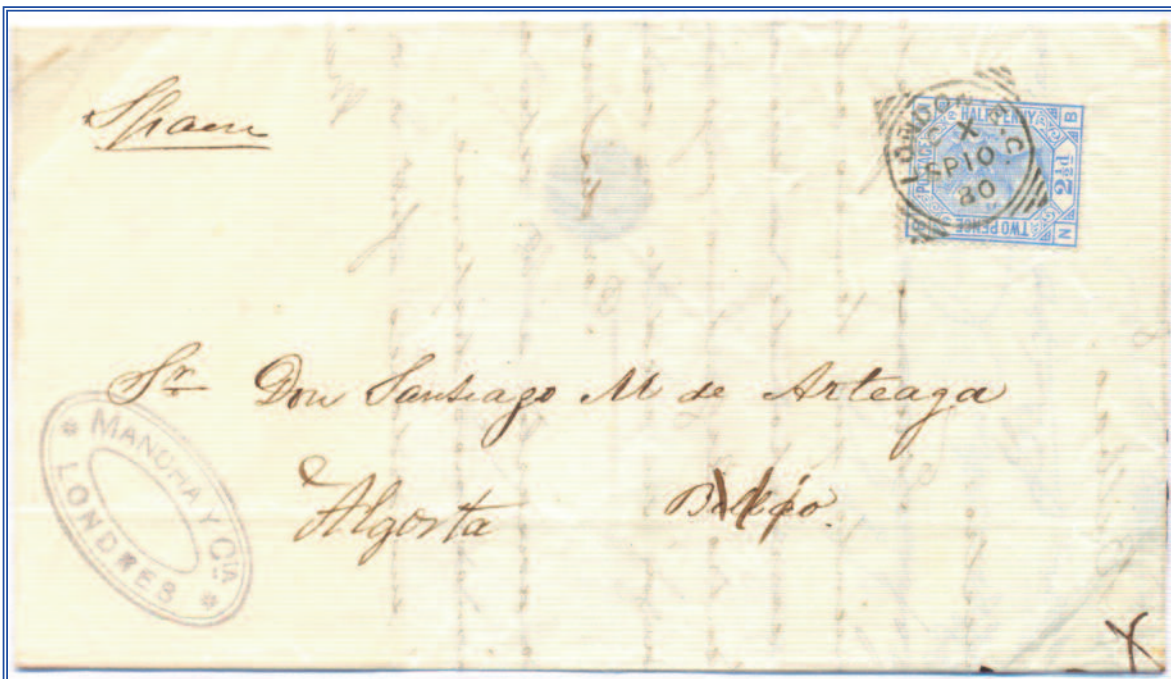 Spain
LONDON E.C
X
C
SP 10
80
POSTAGE
HALFPENNY
2½d
TWO PENCE
B
N
Sr Don Santiago M de Arteaga
Algorta Bilbao.
* MANCHA Y CIA *
LONDRES